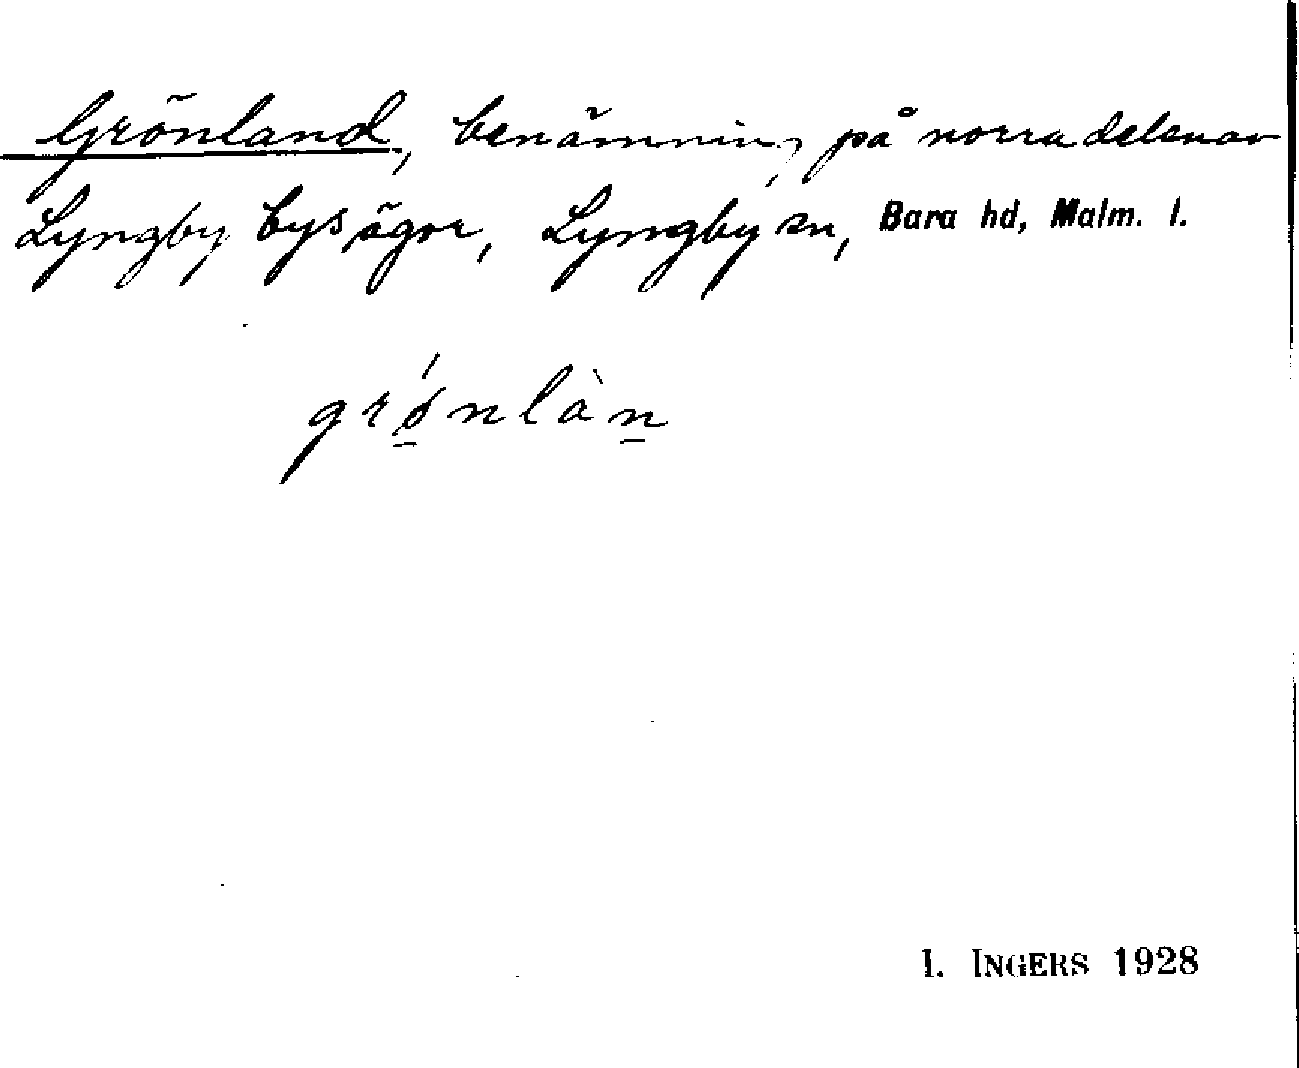 Grönland, benämning på norra delen av
Lyngby bys ägor, Lyngby sn, Bara hd, Malm. l.
grǿ̱nlàṉ
I. INGERS 1928